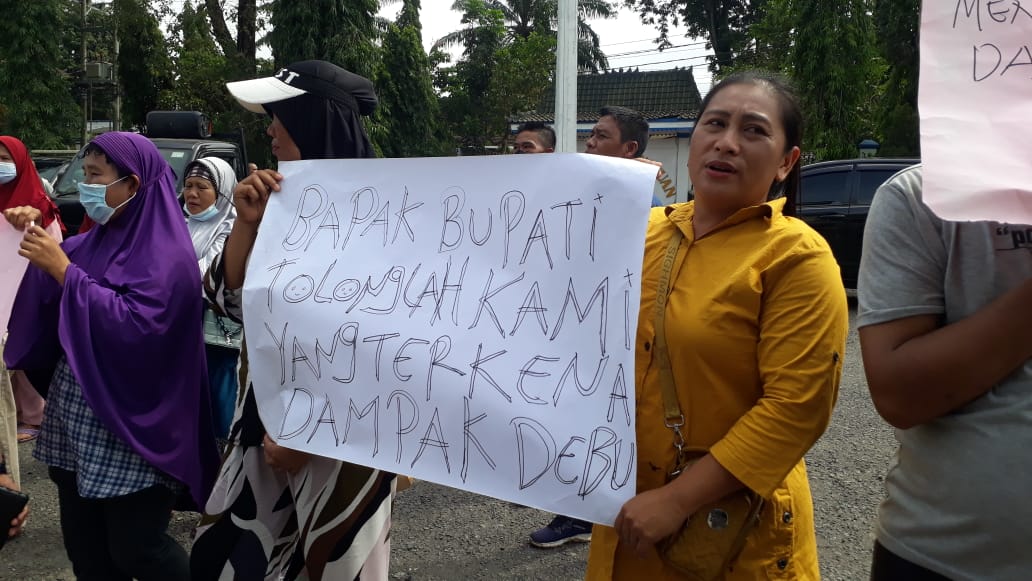 BAPAK BUPATI
TOLONGLAH KAMI
YANG TERKENA
DAMPAK DEBU
DA